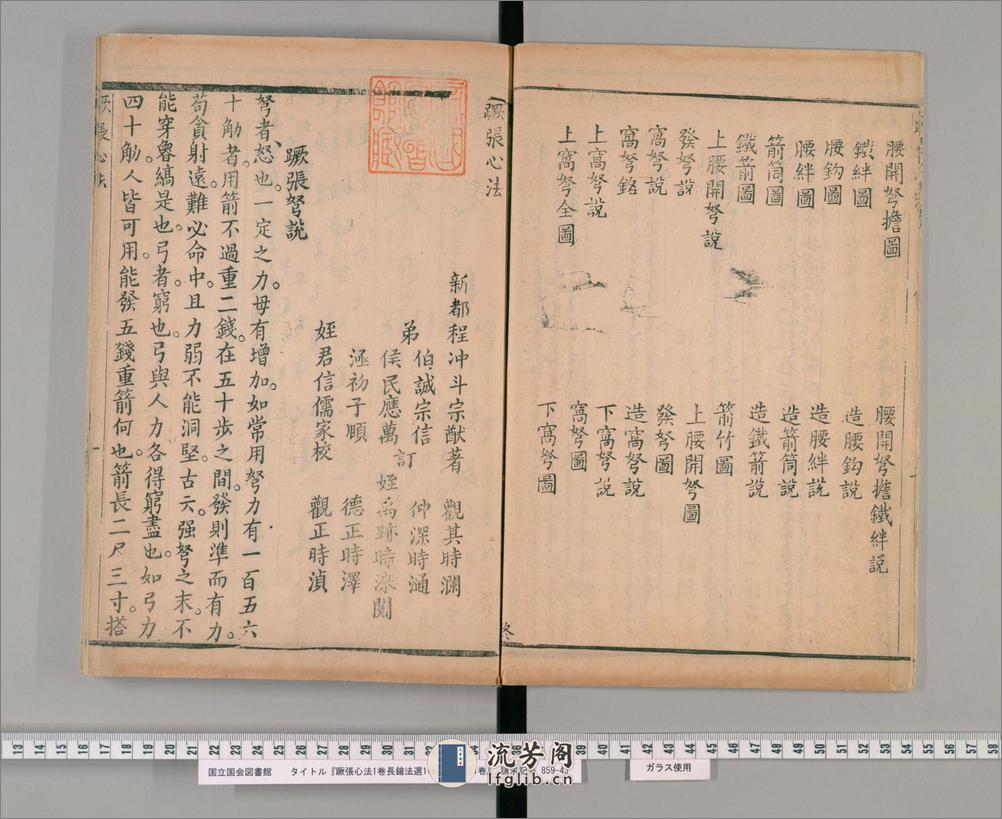 腰開弩擔圖
腰開弩擔鐵絆説
鐵絆圖
腰鈎圖
造腰鈎説
腰絆圖
造腰絆説
箭筒圖
造箭筒説
鐵箭圖
造鐵箭説
箭竹圖
上腰開弩説
上腰開弩圖
發弩説
發弩圖
窩弩説
造窩弩説
窩弩銘
下窩弩説
上窩弩説
窩弩圖
上窩弩全圖
下窩弩圖
終
蹶張心法
新都程冲斗宗猷著
觀其時瀾
弟
伯誠宗信
訂
仲深時涵
侯民應萬
姪禹跡時
涵初子頤
德正時澤
姪君信儒家校
觀正時湞
蹶張弩説
弩者怒也。一定之力。毋有增加。如常用弩力有一百五六
十觔者。用箭不過重二錢。在五十步之間。發則準而有力。
苟貪射遠。難必命中。且力弱不能洞堅。古云。强弩之末。不
能穿魯縞是也。弓者窮也。弓與人力各得窮盡也。如弓力
四十觔。人皆可用。能發五錢重箭。何也。箭長二尺三寸。搭
蹶張心法
一
13 14 15 16 17 18 19 20 21 22 23 24 25 26 27 28 29 30 31 32 33 34 35 36 37 38 39 40 41 42 43 44 45 46 47 48 49 50 51 52 53 54 55 56 57 58
国立国会図書館 タイトル『蹶張心法1巻長鎗法選1
859-43
ガラス使用
流芳阁
lfglib.cn